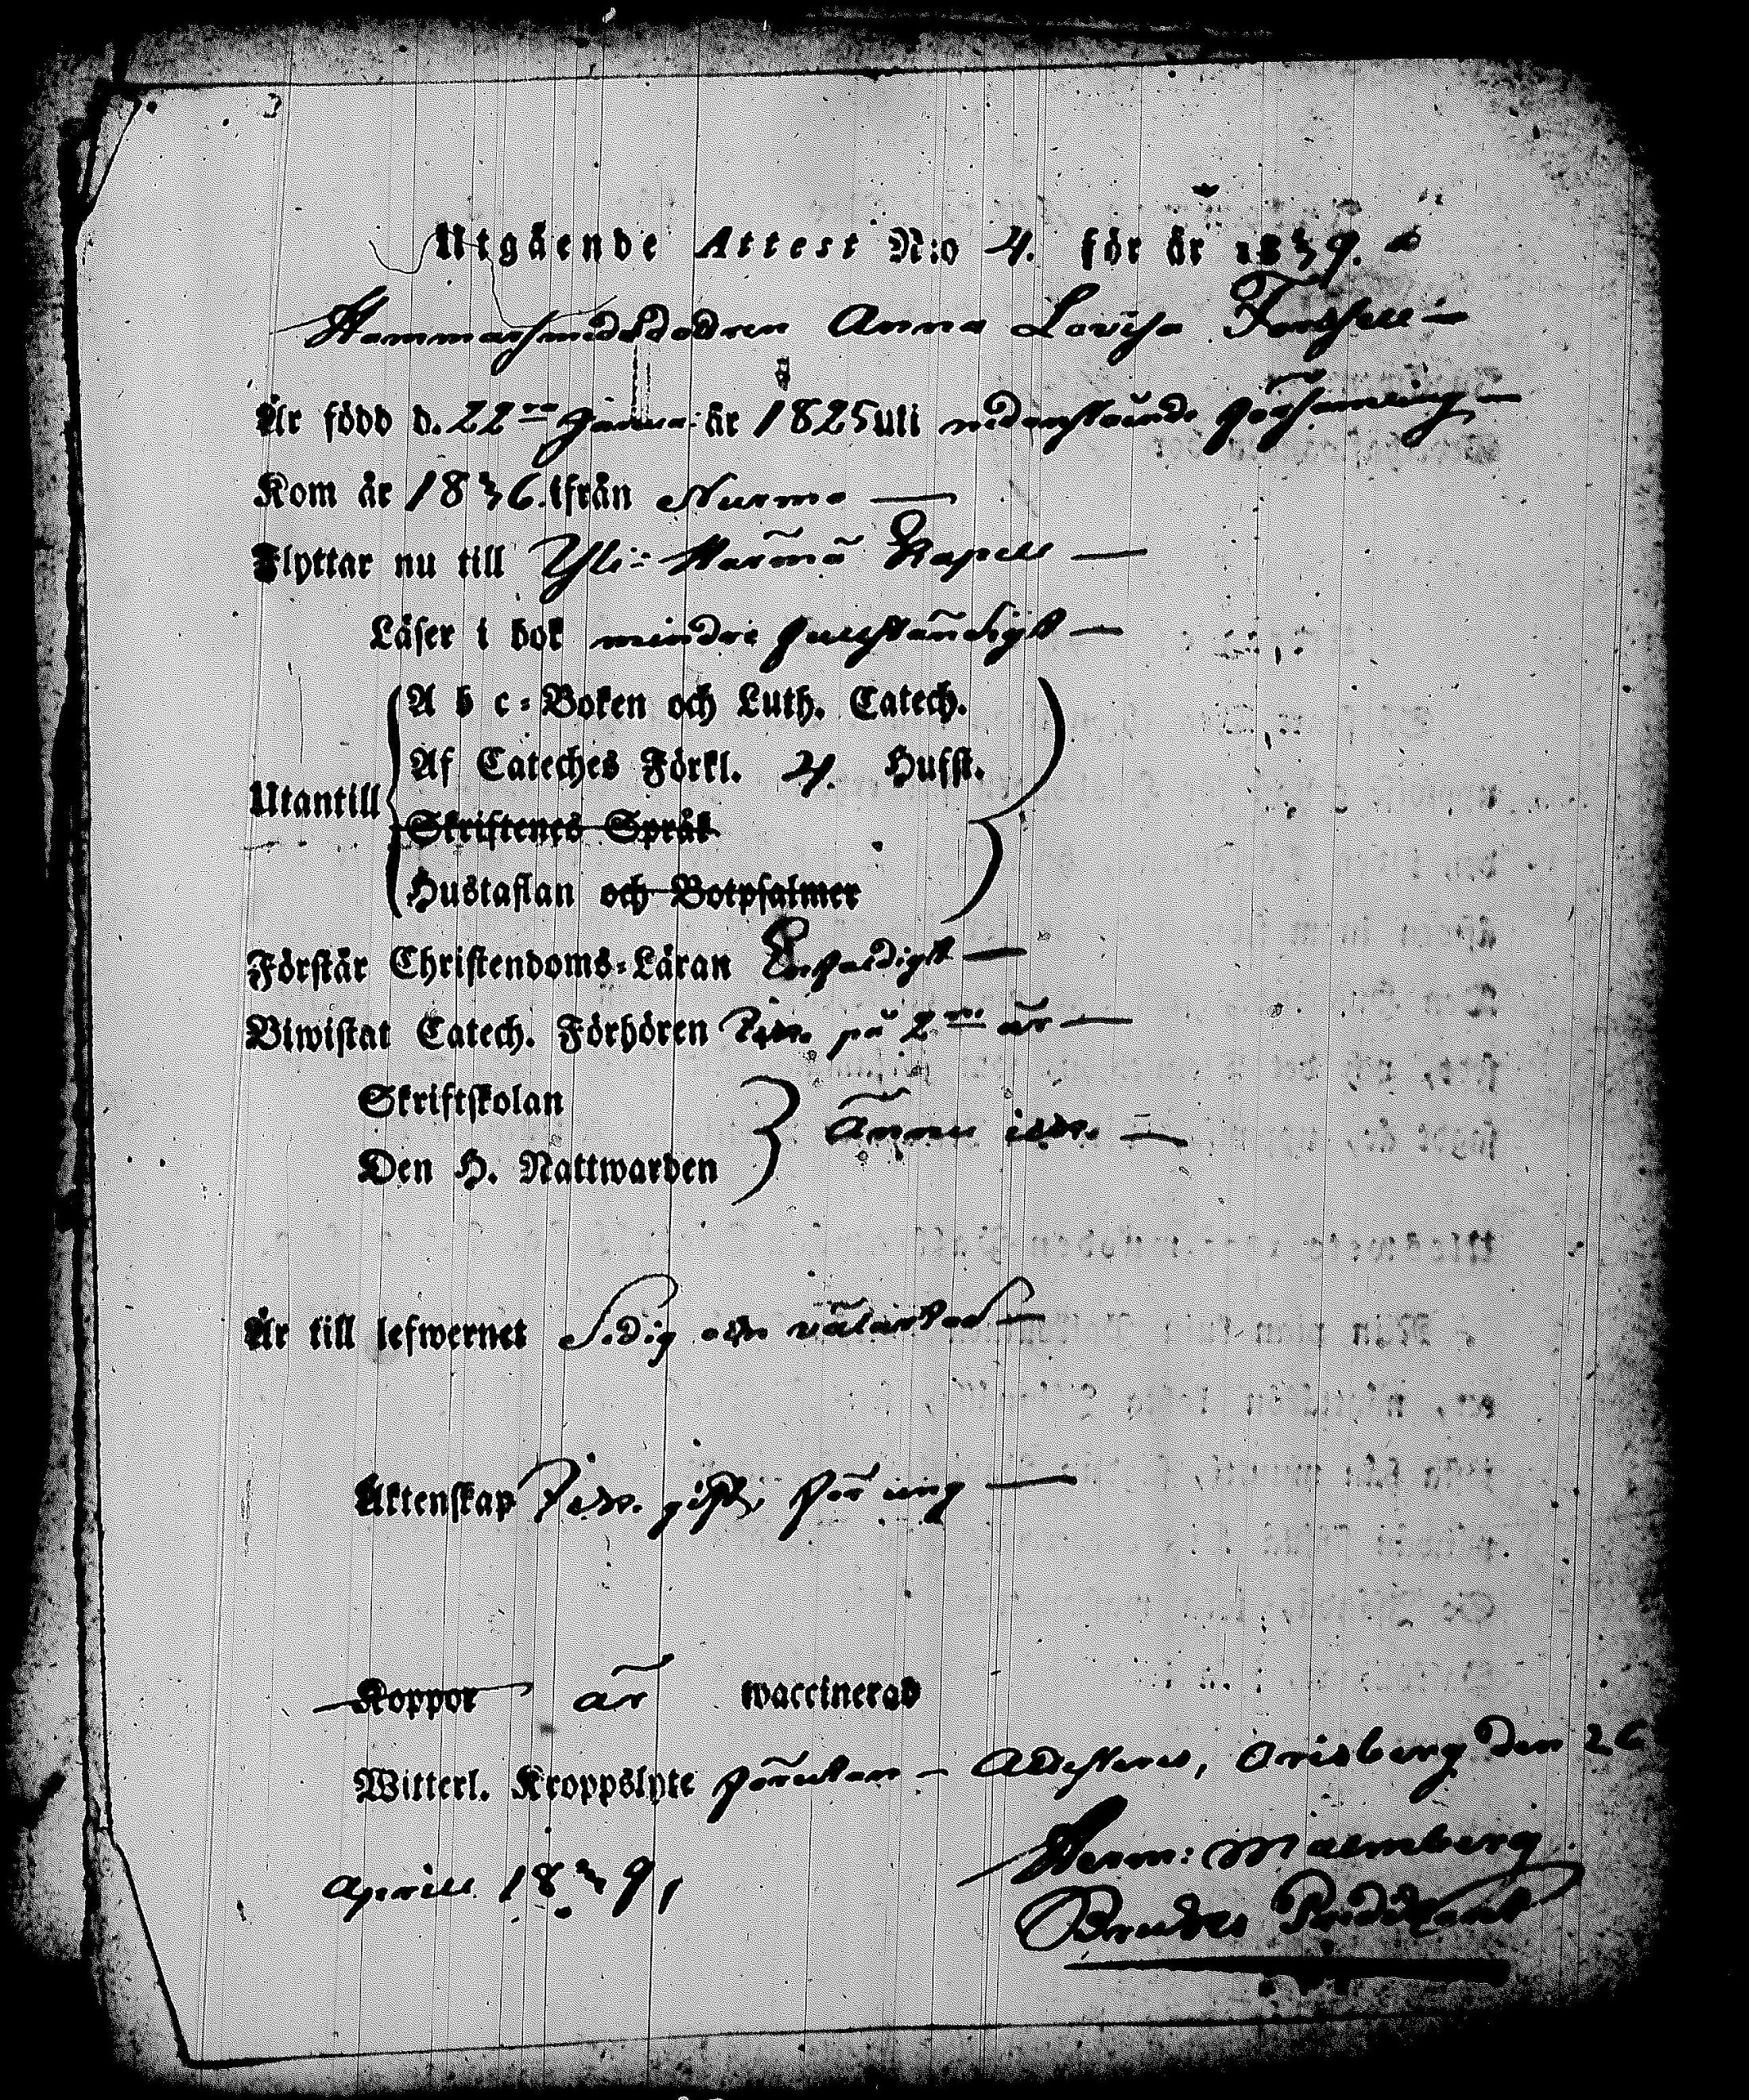 Utgående Attest N:o 4. för år 1839.
Hammarsmedsdodren Anna Lovisa Forssell
Är född d. 22 Janua: år 1825 uti nedanstående församling
Kom år 1836. ifrån Nurmo
Flyttar nu till Yli-Härmä Kapell
Läser i bok mindre fullständigt
A b c-Boken och Luth. Catech.
Af Cateches Förkl. 4. Hufst.
Utantill
Skriftenes Språk
Hustaflan och Botpsalmer
Förstår Christendoms-Läran Enfaldigt
Biwistat Catech. Förhören på 2 år
Skriftskolan
Den H. Nattwarden
ännu icke
Är till lefwernet Sedig och välartad
Äktenskap för ung
Koppor är waccinerad
Witterl. Kroppslyte förutan - Attesteras, Orisberg den 26
Aprill 1839,
Herm: Malmberg
Bruks Predikant